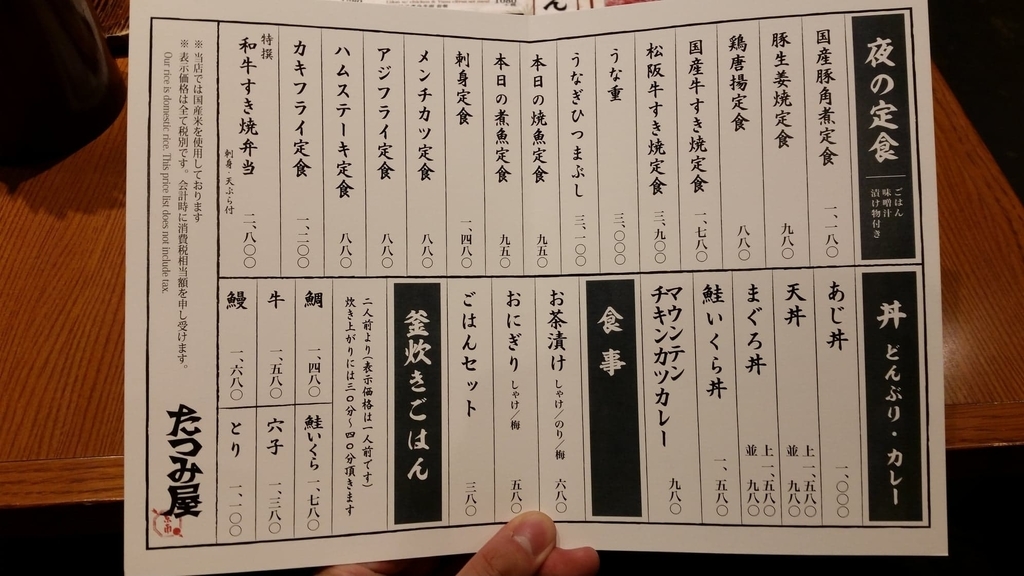 夜の定食
ごはん
味噌汁
漬け物付き
国産豚角煮定食 一、一八〇
豚生姜焼定食 九八〇
鶏唐揚定食 八八〇
国産牛すき焼定食 一、七八〇
松阪牛すき焼定食 三、九〇〇
うな重 三、〇〇〇
うなぎひつまぶし 三、一〇〇
本日の焼魚定食 九五〇
本日の煮魚定食 九五〇
刺身定食 一、四八〇
メンチカツ定食 八八〇
アジフライ定食 八八〇
ハムステーキ定食 八八〇
カキフライ定食 一、二〇〇
特撰
和牛すき焼弁当 二、八〇〇
刺身・天ぷら付
丼 どんぶり・カレー
あじ丼 一、〇〇〇
天丼 上 一、五八〇
並 九八〇
まぐろ丼 上 一、五八〇
並 九八〇
鮭いくら丼 一、五八〇
マウンテン
チキンカツカレー 九八〇
食事
お茶漬け しゃけ/のり/梅 六八〇
おにぎり しゃけ/梅 五八〇
ごはんセット 三八〇
釜炊きごはん
二人前より(表示価格は一人前です)
炊き上がりには三〇分〜四〇分頂きます
鯛 一、四八〇
鮭いくら 一、七八〇
牛 一、五八〇
穴子 一、三八〇
鰻 一、六八〇
とり 一、一〇〇
※ 当店では国産米を使用しております
※ 表示価格は全て税別です。会計時に消費税相当額を申し受けます。
Our rice is domestic rice. This price list does not include tax.
たつみ屋